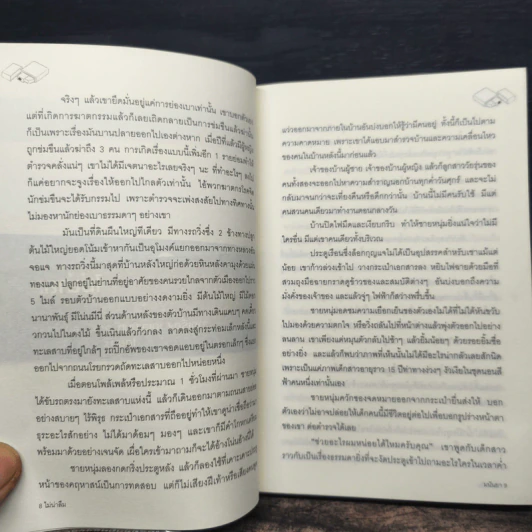 จริงๆ แล้วเขายึดมั่นอยู่แค่การย่องเบาเท่านั้น เขาบอกตัวเอง
แต่ที่เกิดการฆาตกรรมแล้วก็เลยเถิดกลายเป็นการข่มขืนแล้วฆ่านั้น
ก็เป็นเพราะเรื่องมันบานปลายออกไปเองต่างหาก เมื่อปีที่แล้วมีผู้หญิง
ถูกข่มขืนแล้วฆ่าถึง 3 คน การเกิดเรื่องแบบนี้เพิ่มอีก 1 รายย่อมทำให้
ตำรวจคลั่งแน่ๆ เขาไม่ได้มีเจตนาอะไรเลยจริงๆ นะ ที่ทำอะไร
ก็แค่อยากจะจูงเรื่องให้ออกไปไกลตัวเท่านั้น ให้พวกฆาตกรโรคจิต
นักข่มขืนจะได้รับกรรมไป เพราะตำรวจจะเพ่งสงสัยไปทางทิศทางนั้น
ไม่มองหานักย่องเบาธรรมดาๆ อย่างเขา
มันเป็นที่ดินผืนใหญ่ทีเดียว มีทางรถวิ่งซึ่ง 2 ข้างทาง
ต้นไม้ใหญ่ยอดโน้มเข้าหากันเป็นอุโมงค์แยกออกมาจากทางหลวง
จอแจ ทางรถวิ่งนี้มาสุดที่บ้านหลังใหญ่ก่อด้วยหินหลังคามุงด้วยแผ่น
ทองแดง ปลูกอยู่ในย่านที่อยู่อาศัยของคนรวยไกลจากตัวเมืองออกไป
5 ไมล์ รอบตัวบ้านออกแบบอย่างงดงามยิ่ง มีต้นไม้ใหญ่ มีไม้
นานาพันธุ์ มีโป่งมีนี่ ส่วนด้านหลังของตัวบ้านมีทางเดินแคบๆ คดเคี้ยว
วกวนไปในดงไม้ ขึ้นเนินแล้วก็วกลง ลาดลงสู่กระท่อมเล็กหลังนั้น
ทะเลสาบที่อยู่ใกล้ๆ รถปิ๊กอัพของเขาจอดแอบอยู่ในตรอกเล็กๆ ซึ่งแยก
ออกไปจากถนนโรยกรวดถัดทะเลสาบออกไปหน่อยหนึ่ง
เมื่อตอนโพล้เพล้หรือประมาณ 1 ชั่วโมงที่ผ่านมา ชายหนุ่ม
ได้ขับรถตรงมายังทะเลสาบแห่งนี้ แล้วก็เดินออกมาตามถนน
อย่างสบายๆ ไร้พิรุธ กระเป๋าเอกสารที่ถืออยู่ทำให้เขาดูน่าเชื่อถือ
ธุระอะไรสักอย่าง ไม่ได้มาด้อมๆ มองๆ และเขาก็มีคำโกหก
พร้อมมาด้วยอย่างเจนจัด เผื่อใครเข้ามาถามก็จะได้อ้างโน่นอ้างนี่
ชายหนุ่มลองกดกริ่งประตูหลัง แล้วก็ลองใช้ที่เคาะเคาะประตู
หน้าของคฤหาสน์เป็นการทดสอบ แต่ก็ไม่มีเสียงมีเท้าหรือเสียง
8 ไม่น่าลืม
แว่วออกมาจากภายในบ้านอันบ่งบอกให้รู้ว่ามีคนอยู่ ทั้งนี้ก็เป็นไปตาม
ความคาดหมาย เพราะเขาได้แอบมาสำรวจบ้านและความเคลื่อนไหว
ของคนในบ้านหลังนี้มาก่อนแล้ว
เจ้าของบ้านผู้ชาย เจ้าของบ้านผู้หญิง แล้วก็ลูกสาววัยรุ่นของ
คนทั้งสองจะออกไปหาความสำราญนอกบ้านทุกค่ำวันศุกร์ และจะไม่
กลับมาจนกว่าจะเที่ยงคืนหรือดึกกว่านั้น บ้านนี้ไม่มีคนรับใช้ มีแต่
คนสวนคนเดียวมาทำงานตอนกลางวัน
บ้านปิดไฟมืดและเงียบกริบ ทำให้ชายหนุ่มยิ่งแน่ใจว่าไม่มี
ใครอื่น มีแต่เขาคนเดียวทั้งบริเวณ
ประตูเรือนซึ่งล็อกกุญแจไม่ได้เป็นอุปสรรคสำหรับเขาแม้แต่
น้อย เขาก้าวล่วงเข้าไป วางกระเป๋าเอกสารลง หยิบไฟฉายด้วยมือที่
สวมถุงมือยางกราดดูข้าวของและสมบัติต่างๆ อันบ่งบอกถึงความ
มั่งคั่งของเจ้าของ และแล้วจู่ๆ ไฟฟ้าก็สว่างพรึ่บขึ้น
ชายหนุ่มอดชมความเยือกเย็นของตัวเองไม่ได้ที่ไม่ได้หันขวับ
ไปมองด้วยความตกใจ หรือวิ่งถลันไปที่หน้าต่างแล้วพุ่งตัวออกไปอย่าง
ลนลาน เขาเพียงแต่หมุนตัวกลับไปช้าๆ แล้วยิ้มน้อยๆ ด้วยรอยยิ้มชื่อ
อย่างยิ่ง และแล้วก็พบว่าภาพที่เห็นนั้นไม่ได้มีอะไรน่ากลัวเลยสักนิด
เพราะเป็นแค่ภาพเด็กสาวอายุราว 15 ปีท่าทางง่วงๆ งัวเงียในชุดนอนสี
ฟ้าคนหนึ่งเท่านั้นเอง
ชายหนุ่มควักของจากหมวกออกจากกระเป๋ายื่นส่งให้ บอก
ตัวเองว่าไม่อาจปล่อยให้เด็กคนนี้มีชีวิตอยู่ต่อไปเพื่อบอกรูปร่างหน้าตา
ของเขา ต่อตำรวจได้เลย
"ช่วยอะไรผมหน่อยได้ไหมครับคุณ" เขาพูดกับเด็กสาว
ราวกับเป็นเรื่องธรรมดายิ่งที่จะงัดประตูเข้าไปถามอะไรใครในเวลาค่ำ